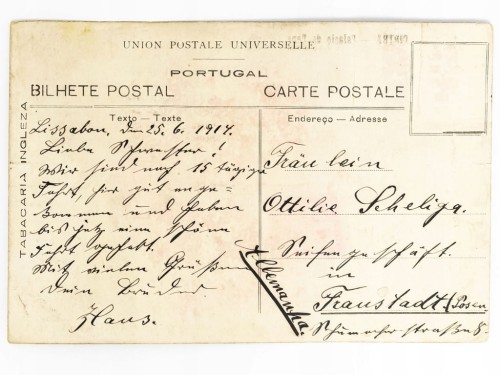 UNION POSTALE UNIVERSELLE
PORTUGAL
BILHETE POSTAL
CARTE POSTALE
TABACARIA INGLEZA
Texto – Texte
Lissabon, den 25.6.1914.
Liebe Schwester!
Wir sind nach 15 tägiger
Fahrt, hier gut ange-
kommen und haben
bis jetzt eine schöne
Fahrt gehabt.
Mit vielen Grüßen
Dein Bruder
Hans.
Endereço – Adresse
Fräulein
Ottilie Scheliga.
Seifengeschäft.
in
Fraustadt (Posen
Schumacherstraße
Allemanha.